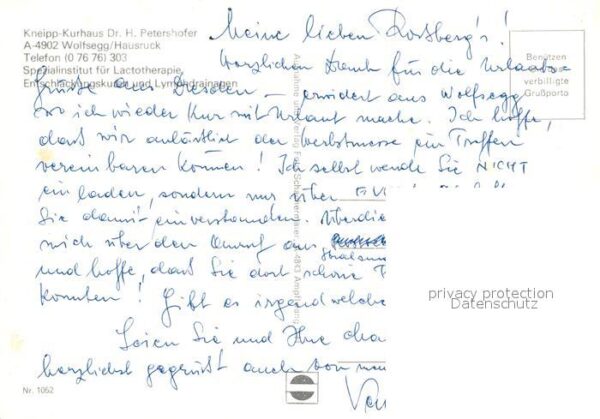 Kneipp-Kurhaus Dr. H. Petershofer
A-4902 Wolfsegg/Hausruck
Telefon (0 76 76) 303
Spezialinstitut für Lactotherapie,
Entschlackungskuren und Lymphdrainagen
Benützen
verbilligte
Grußporto
Meine lieben Rossberg's!
Herzlichen Dank für die Urlaubs-
Grüße aus Dresden – erwidert aus Wolfsegg
wo ich wieder Kur mit Urlaub mache. Ich hoffe,
daß wir anläßlich der Herbstmesse ein Treffen
vereinbaren können! Ich selbst werde Sie NICHT
einladen, sondern nur über
Sie damit einverstanden. Überdie
mich über den Anruf aus
Stralsun
und hoffe, daß Sie dort schöne
konnten! Gibt es irgendwelche
Seien Sie und Ihre
herzlichst gegrüßt auch von
privacy protection
Datenschutz
Nr. 1052